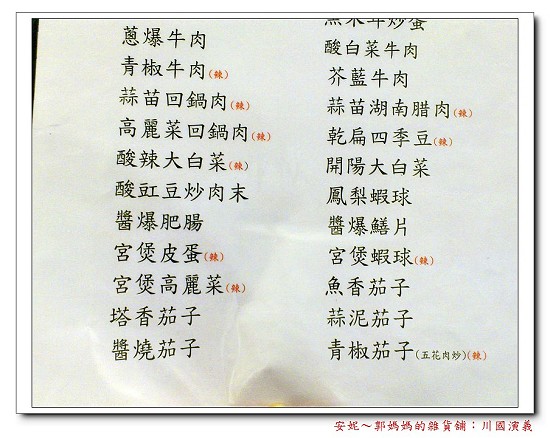 蔥爆牛肉
青椒牛肉(辣)
蒜苗回鍋肉(辣)
高麗菜回鍋肉(辣)
酸辣大白菜(辣)
酸豇豆炒肉末
醬爆肥腸
宮煲皮蛋(辣)
宮煲高麗菜(辣)
塔香茄子
醬燒茄子
酸白菜牛肉
芥藍牛肉
蒜苗湖南腊肉(辣)
乾扁四季豆(辣)
開陽大白菜
鳳梨蝦球
醬爆鱔片
宮煲蝦球(辣)
魚香茄子
蒜泥茄子
青椒茄子(五花肉炒)(辣)
安妮～郭媽媽的雜貨舖：川國演義